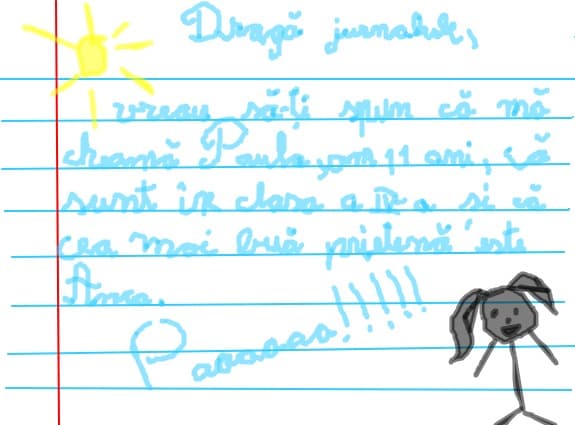 Dragă jurnalule,
vreau să-ți spun că mă
cheamă Paula, am 11 ani, că
sunt în clasa a IV a si că
cea mai bună prietenă este
Anca.
Paaaaaa!!!!!!